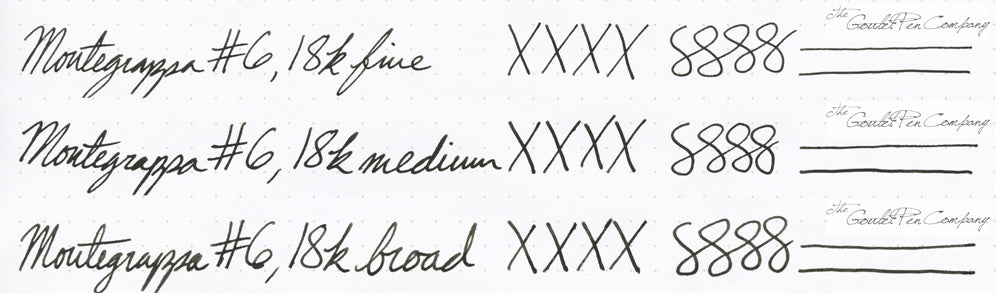 Montegrappa #6, 18k fine XXXX 8888 The Goulet Pen Company
Montegrappa #6, 18k medium XXXX 8888 The Goulet Pen Company
Montegrappa #6, 18k broad XXXX 8888 The Goulet Pen Company